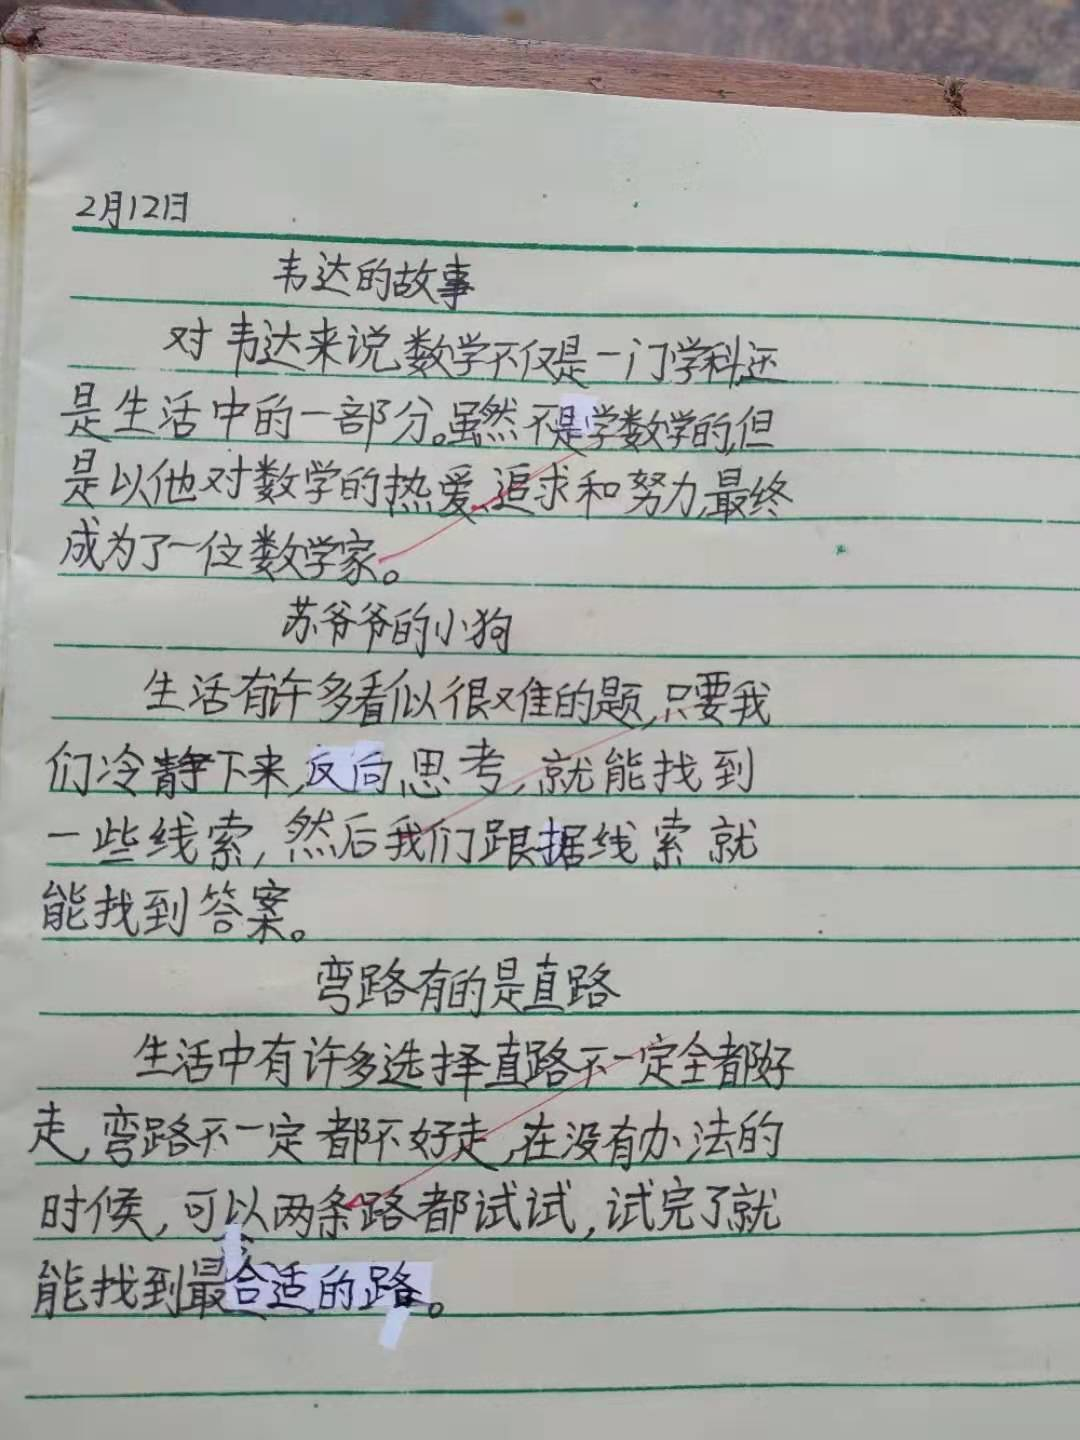 2月12日
韦达的故事
对韦达来说,数学不仅是一门学科,还
是生活中的一部分。虽然不是学数学的,但
是以他对数学的热爱、追求和努力,最终
成为了一位数学家。
苏爷爷的小狗
生活有许多看似很难的题,只要我
们冷静下来,反向思考,就能找到
一些线索,然后我们跟据线索就
能找到答案。
弯路有的是直路
生活中有许多选择直路不一定全都好
走,弯路不一定都不好走,在没有办法的
时候,可以两条路都试试,试完了就
能找到最合适的路。